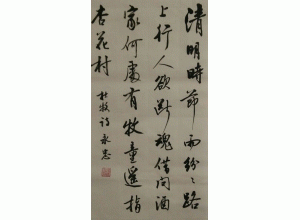 清明時節雨紛〻路
上行人欲斷魂借問酒
家何處有牧童遥指
杏花村
杜牧詩 永忠